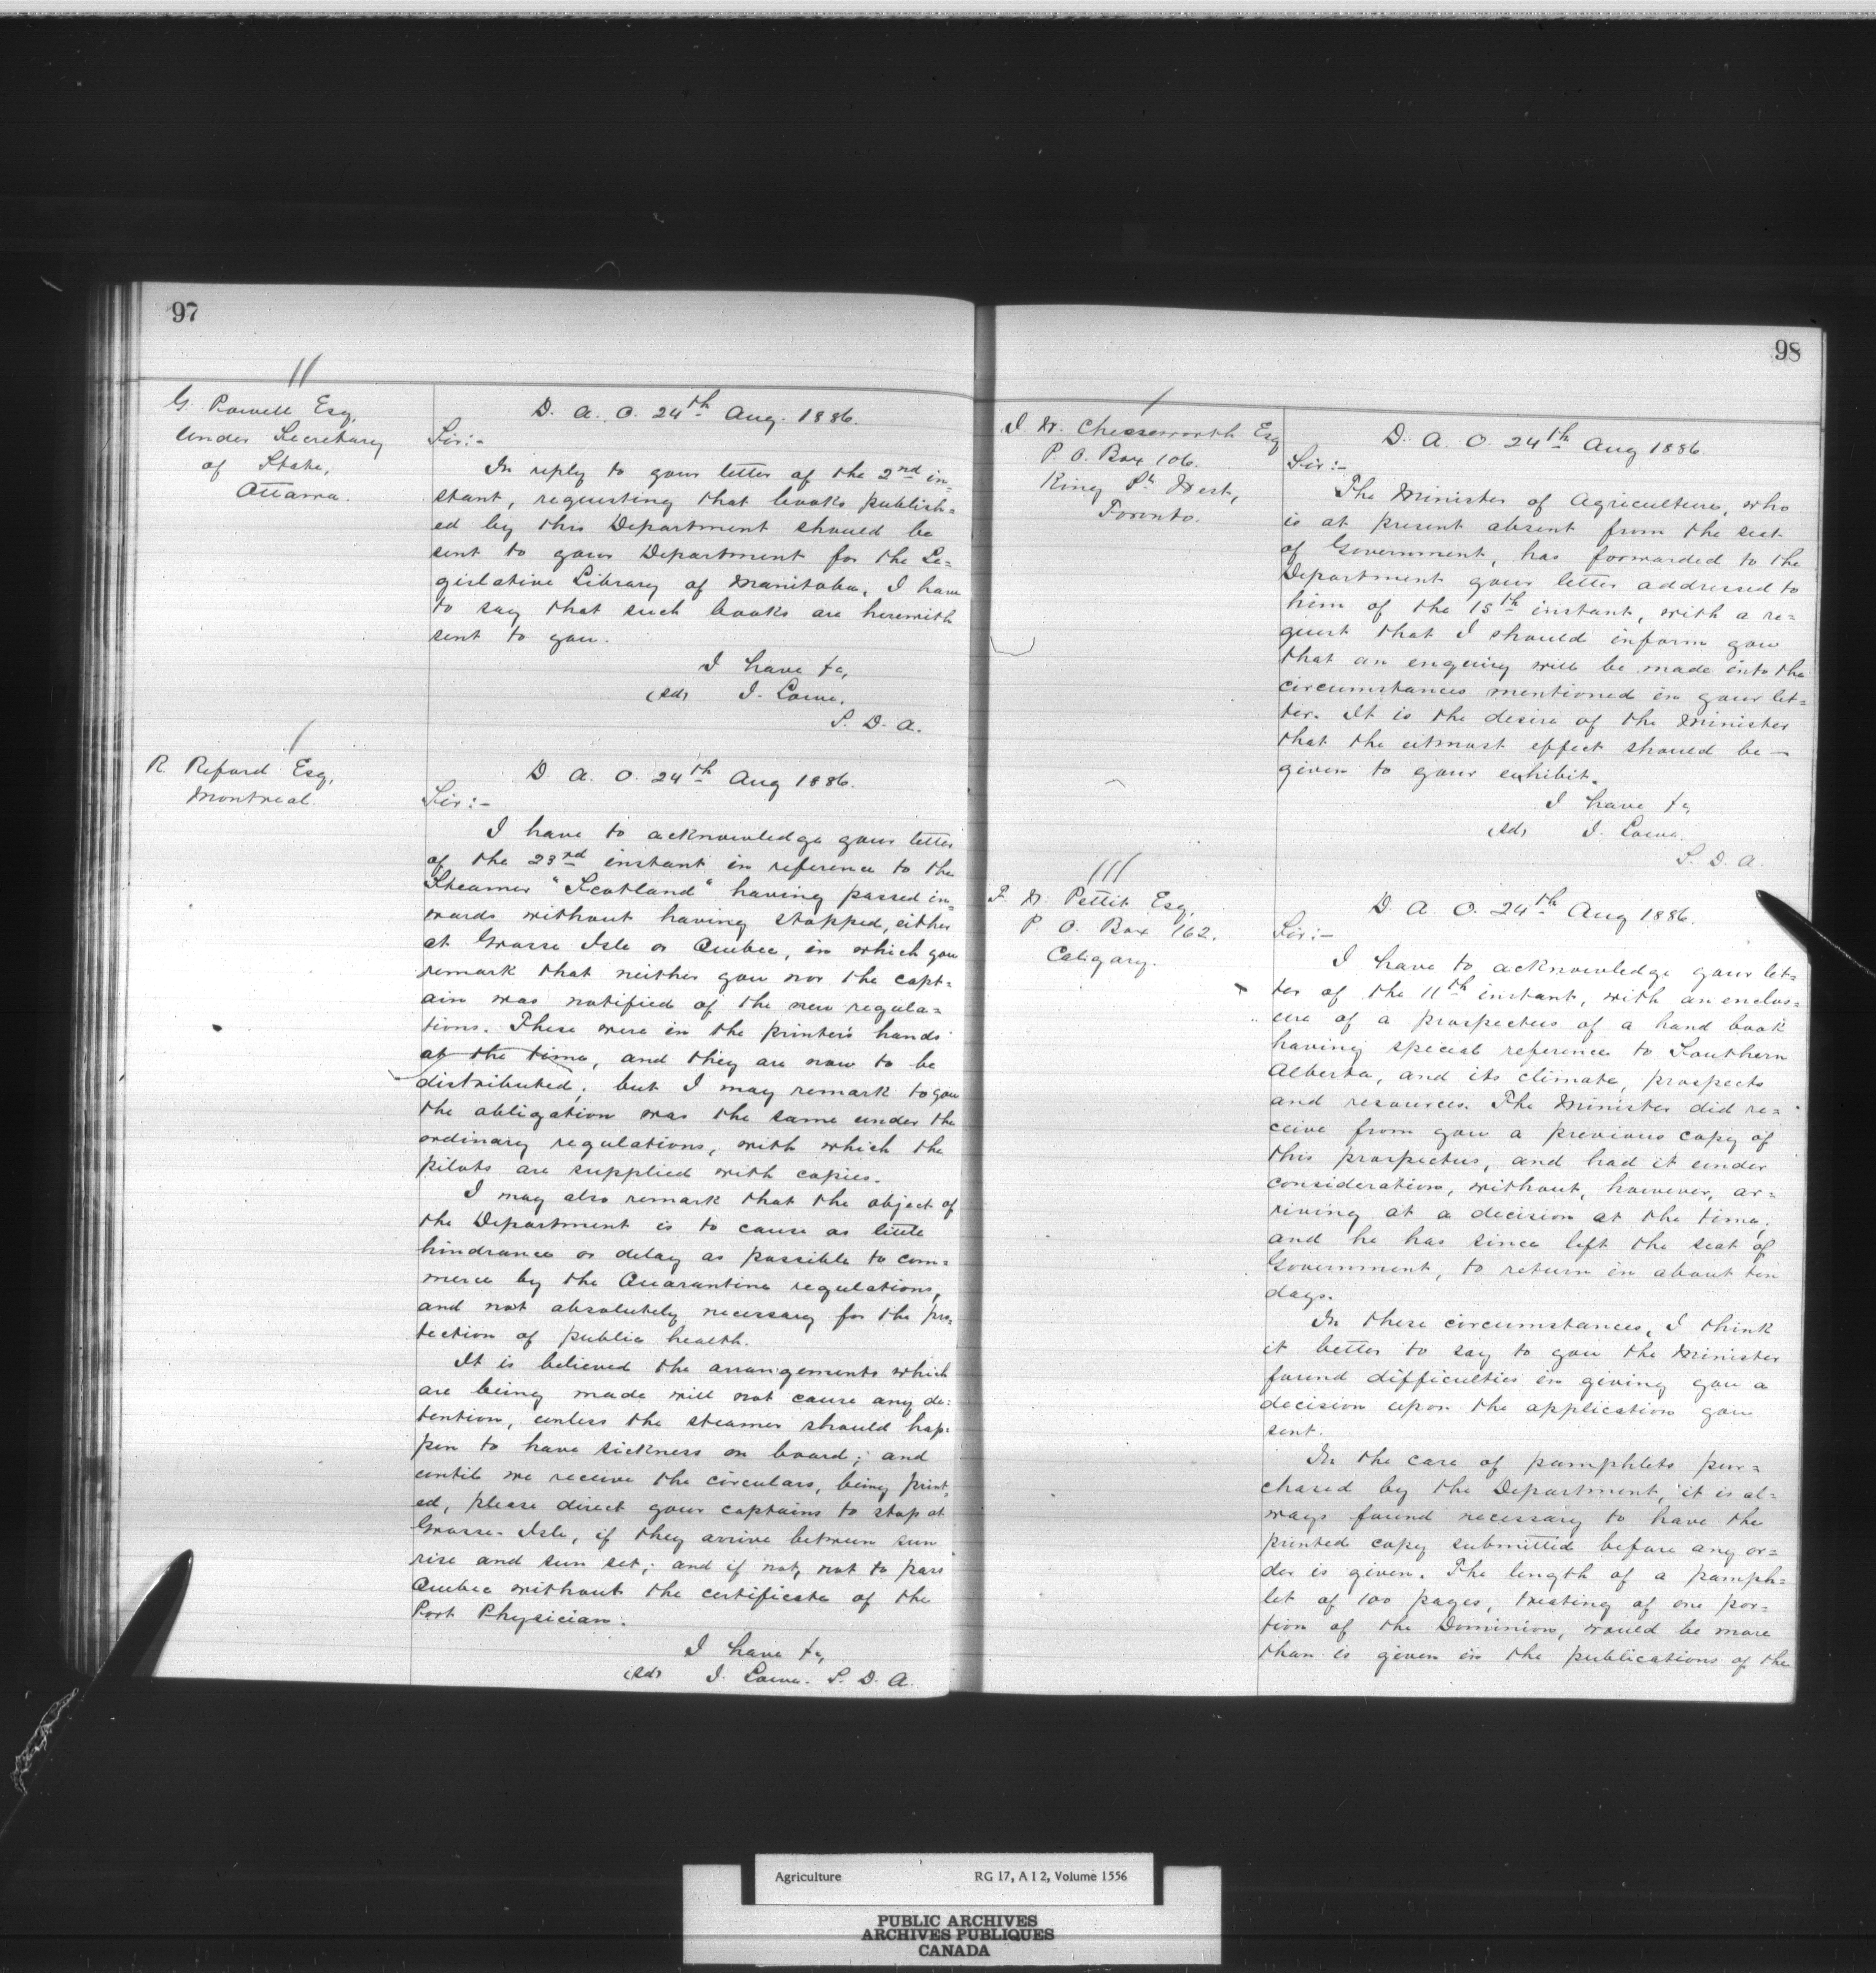 97
G. Powell Esq,
Under Secretary
of State,
Ottawa.
D. A. O. 24th Aug. 1886.
Sir:-
In reply to your letter of the 2nd in=
stant, requesting that books publish=
ed by this Department should be
sent to your Department for the Le=
gislative Library of Manitoba, I have
to say that such books are herewith
sent to you.
I have &c,
(sd) J. Lowe.
S. D. A.
R Reford Esq,
Montreal.
D. A. O. 24th Aug 1886.
Sir:-
I have to acknowledge your letter
of the 23rd instant in reference to the
Steamer "Scotland" having passed in=
wards without having stopped, either
at Grosse Isle or Quebec, in which you
remark that neither you nor the capt=
ain was notified of the new regula=
tions. These were in the printer's hands
at the time, and they are now to be
distributed; but I may remark to you
the obligation was the same under the
ordinary regulations, with which the
pilots are supplied with copies.
I may also remark that the object of
the Department is to cause as little
hindrance or delay as possible to com=
merce by the Quarantine regulations,
and not absolutely necessary for the pro=
tection of public health.
It is believed the arrangements which
are being made will not cause any de=
tention, unless the steamer should hap=
pen to have sickness on board; and
until we receive the circulars, being print=
ed, please direct your captains to stop at
Grosse-Isle, if they arrive between sun
rise and sun set; and if not, not to pass
Quebec without the certificate of the
Port Physician.
I have &c,
(sd) J. Lowe. S. D. A.
98
J. W. Cheeseworth Esq
P. O. Box 106.
King St West,
Toronto.
D. A. O. 24th Aug 1886.
Sir:-
The Minister of Agriculture, who
is at present absent from the seat
of Government, has forwarded to the
Department your letter addressed to
him of the 15th instant, with a re=
quest that I should inform you
that an enquiry will be made into the
circumstances mentioned in your let=
ter. It is the desire of the Minister
that the utmost effect should be
given to your exhibit.
I have &c,
(sd) J. Lowe.
S. D. A.
F. W. Pettit Esq,
P. O. Box 162.
Calgary.
D. A. O. 24th Aug 1886.
Sir:-
I have to acknowledge your let=
ter of the 11th instant, with an enclos=
ure of a prospectus of a hand book
having special reference to Southern
Alberta, and its climate, prospects
and resources. The Minister did re=
ceive from you a previous copy of
this prospectus, and had it under
consideration, without, however, ar=
riving at a decision at the time;
and he has since left the seat of
Government, to return in about ten
days.
In these circumstances, I think
it better to say to you the Minister
found difficulties in giving you a
decision upon the application you
sent.
In the case of pamphlets pur=
chased by the Department, it is al=
ways found necessary to have the
printed copy submitted before any or=
der is given. The length of a pamph=
let of 100 pages, treating of one por=
tion of the Dominion, would be more
than is given in the publications of the
Agriculture RG 17, A I 2, Volume 1556
PUBLIC ARCHIVES
ARCHIVES PUBLIQUES
CANADA